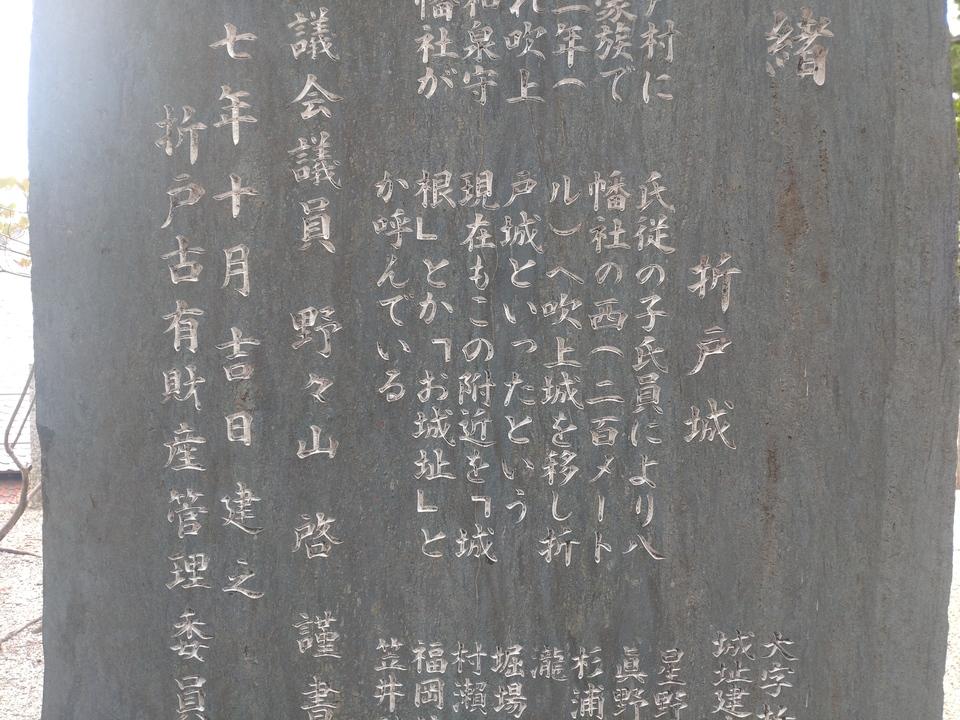 緒
戸村に
家族で
二年一
れ吹上
和泉守
幡社が
折戸城
氏従の子氏員により八
幡社の西(二百メート
ル)へ吹上城を移し折
戸城といったという
現在もこの附近を「城
根」とか「お城址」と
か呼んでいる
大字
城址建
星野
眞野
杉浦
瀧
堀場
村瀨
福岡
笠井
議会議員 野々山 啓 謹書
七年十月吉日 建之
折戸古有財産管理委員